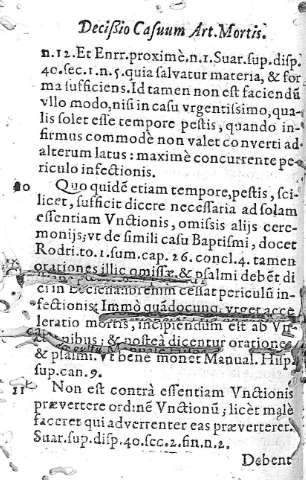 Decisio Casuum Art. Mortis.
n.12. Et Enrr. proximè. n.1. Suar. sup. disp.
40. sec. 1. n. 5. quia salvatur materia, & for
ma sufficiens. Id tamen non est faciendũ
vllo modo, nisi in casu vrgentissimo, qua
lis solet esse tempore pestis, quando in
firmus commodè non valet converti ad
alterum latus: maximè concurrente pe
riculo infectionis.
10 Quo quidẽ etiam tempore, pestis, sci-
licet, sufficit dicere necessaria ad solam
essentiam Vnctionis, omissis alijs cere-
monijs; vt de simili casu Baptismi, docet
Rodri. to. 1. sum. cap. 26. concl. 4. tamen
orationes illic omissæ, & psalmi debẽt di
ci in Ecclesia: ob rem cessat periculũ in-
fectionis. Immò quãdocunq; vrget acce
leratio mortis, incipiendum est ab Vn-
ctionibus; & postea dicentur orationes,
& psalmi. Vt bene monet Manual. Hisp.
sup. can. 9.
11 Non est contrà essentiam Vnctionis
prævertere ordinẽ Vnctionũ; licèt malè
faceret qui adverrenter eas præverteret.
Suar. sup. disp. 40. sec. 2. fin. n. 2.
Debent